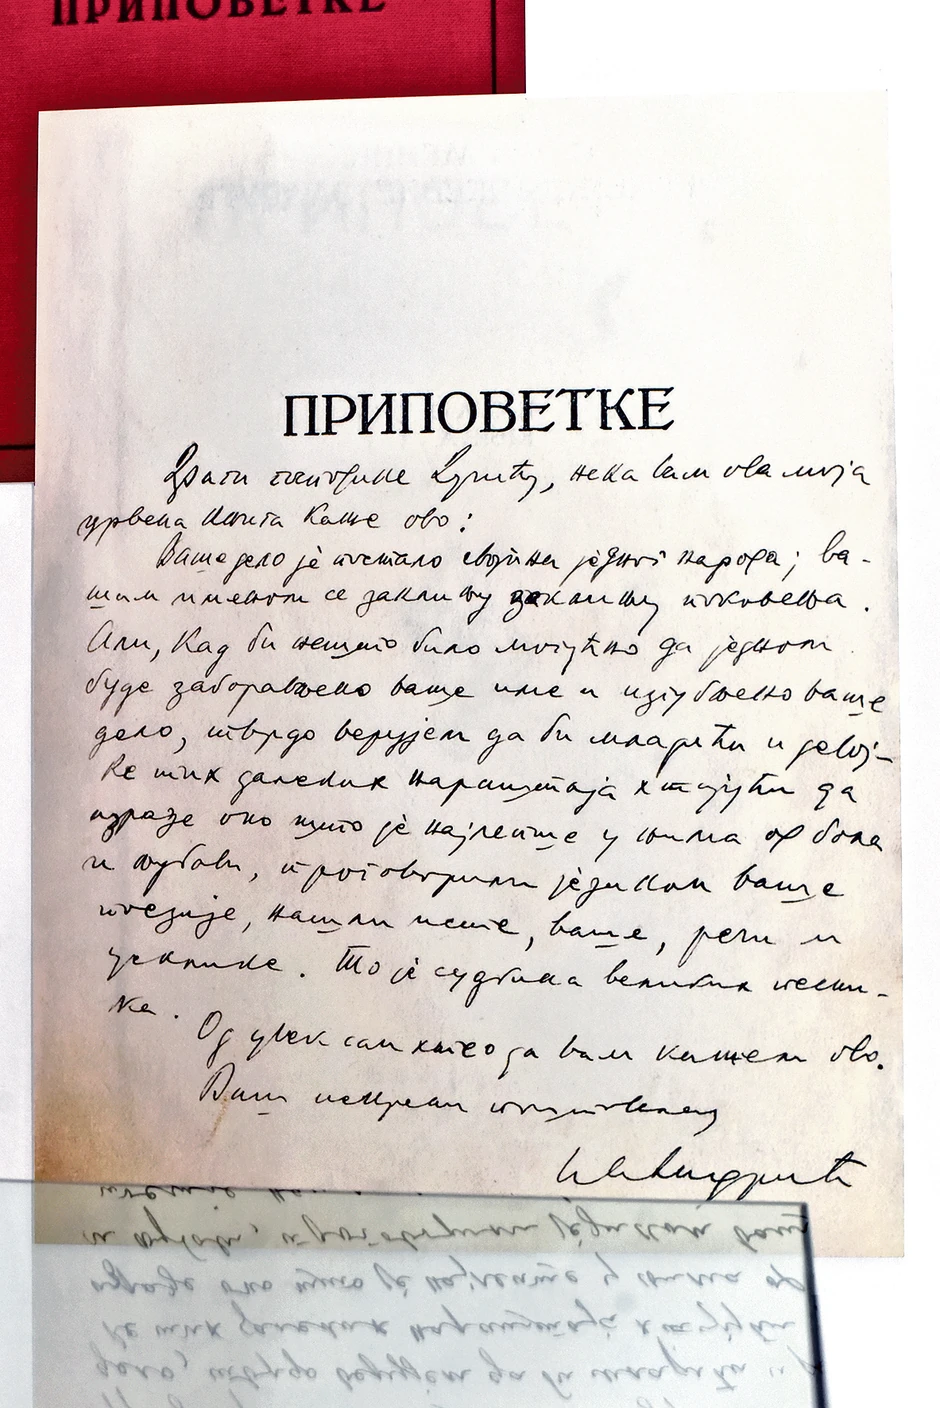 ПРИПОВЕТКЕ
ПРИПОВЕТКЕ
Драги господине Дучићу, нека вам ова моја
црвена књига каже ово:
Ваше дело је постало својина једног народа; ва-
шим именом се заклињу заклињу поколења.
Али, кад би нешто било могућно да једном
буде заборављено ваше име и изгубљено ваше
дело, тврдо верујем да би младићи и девој-
ке тих далеких нараштаја хтејући да
изразе оно што је најлепше у њима од бола
и љубави, проговорили језиком ваше
поезије, нашли исте, ваше, речи и
усклике. То је судбина великих песни-
ка.
Од увек сам хтео да вам кажем ово.
Ваш искрени поштовалац
Иво Андрић